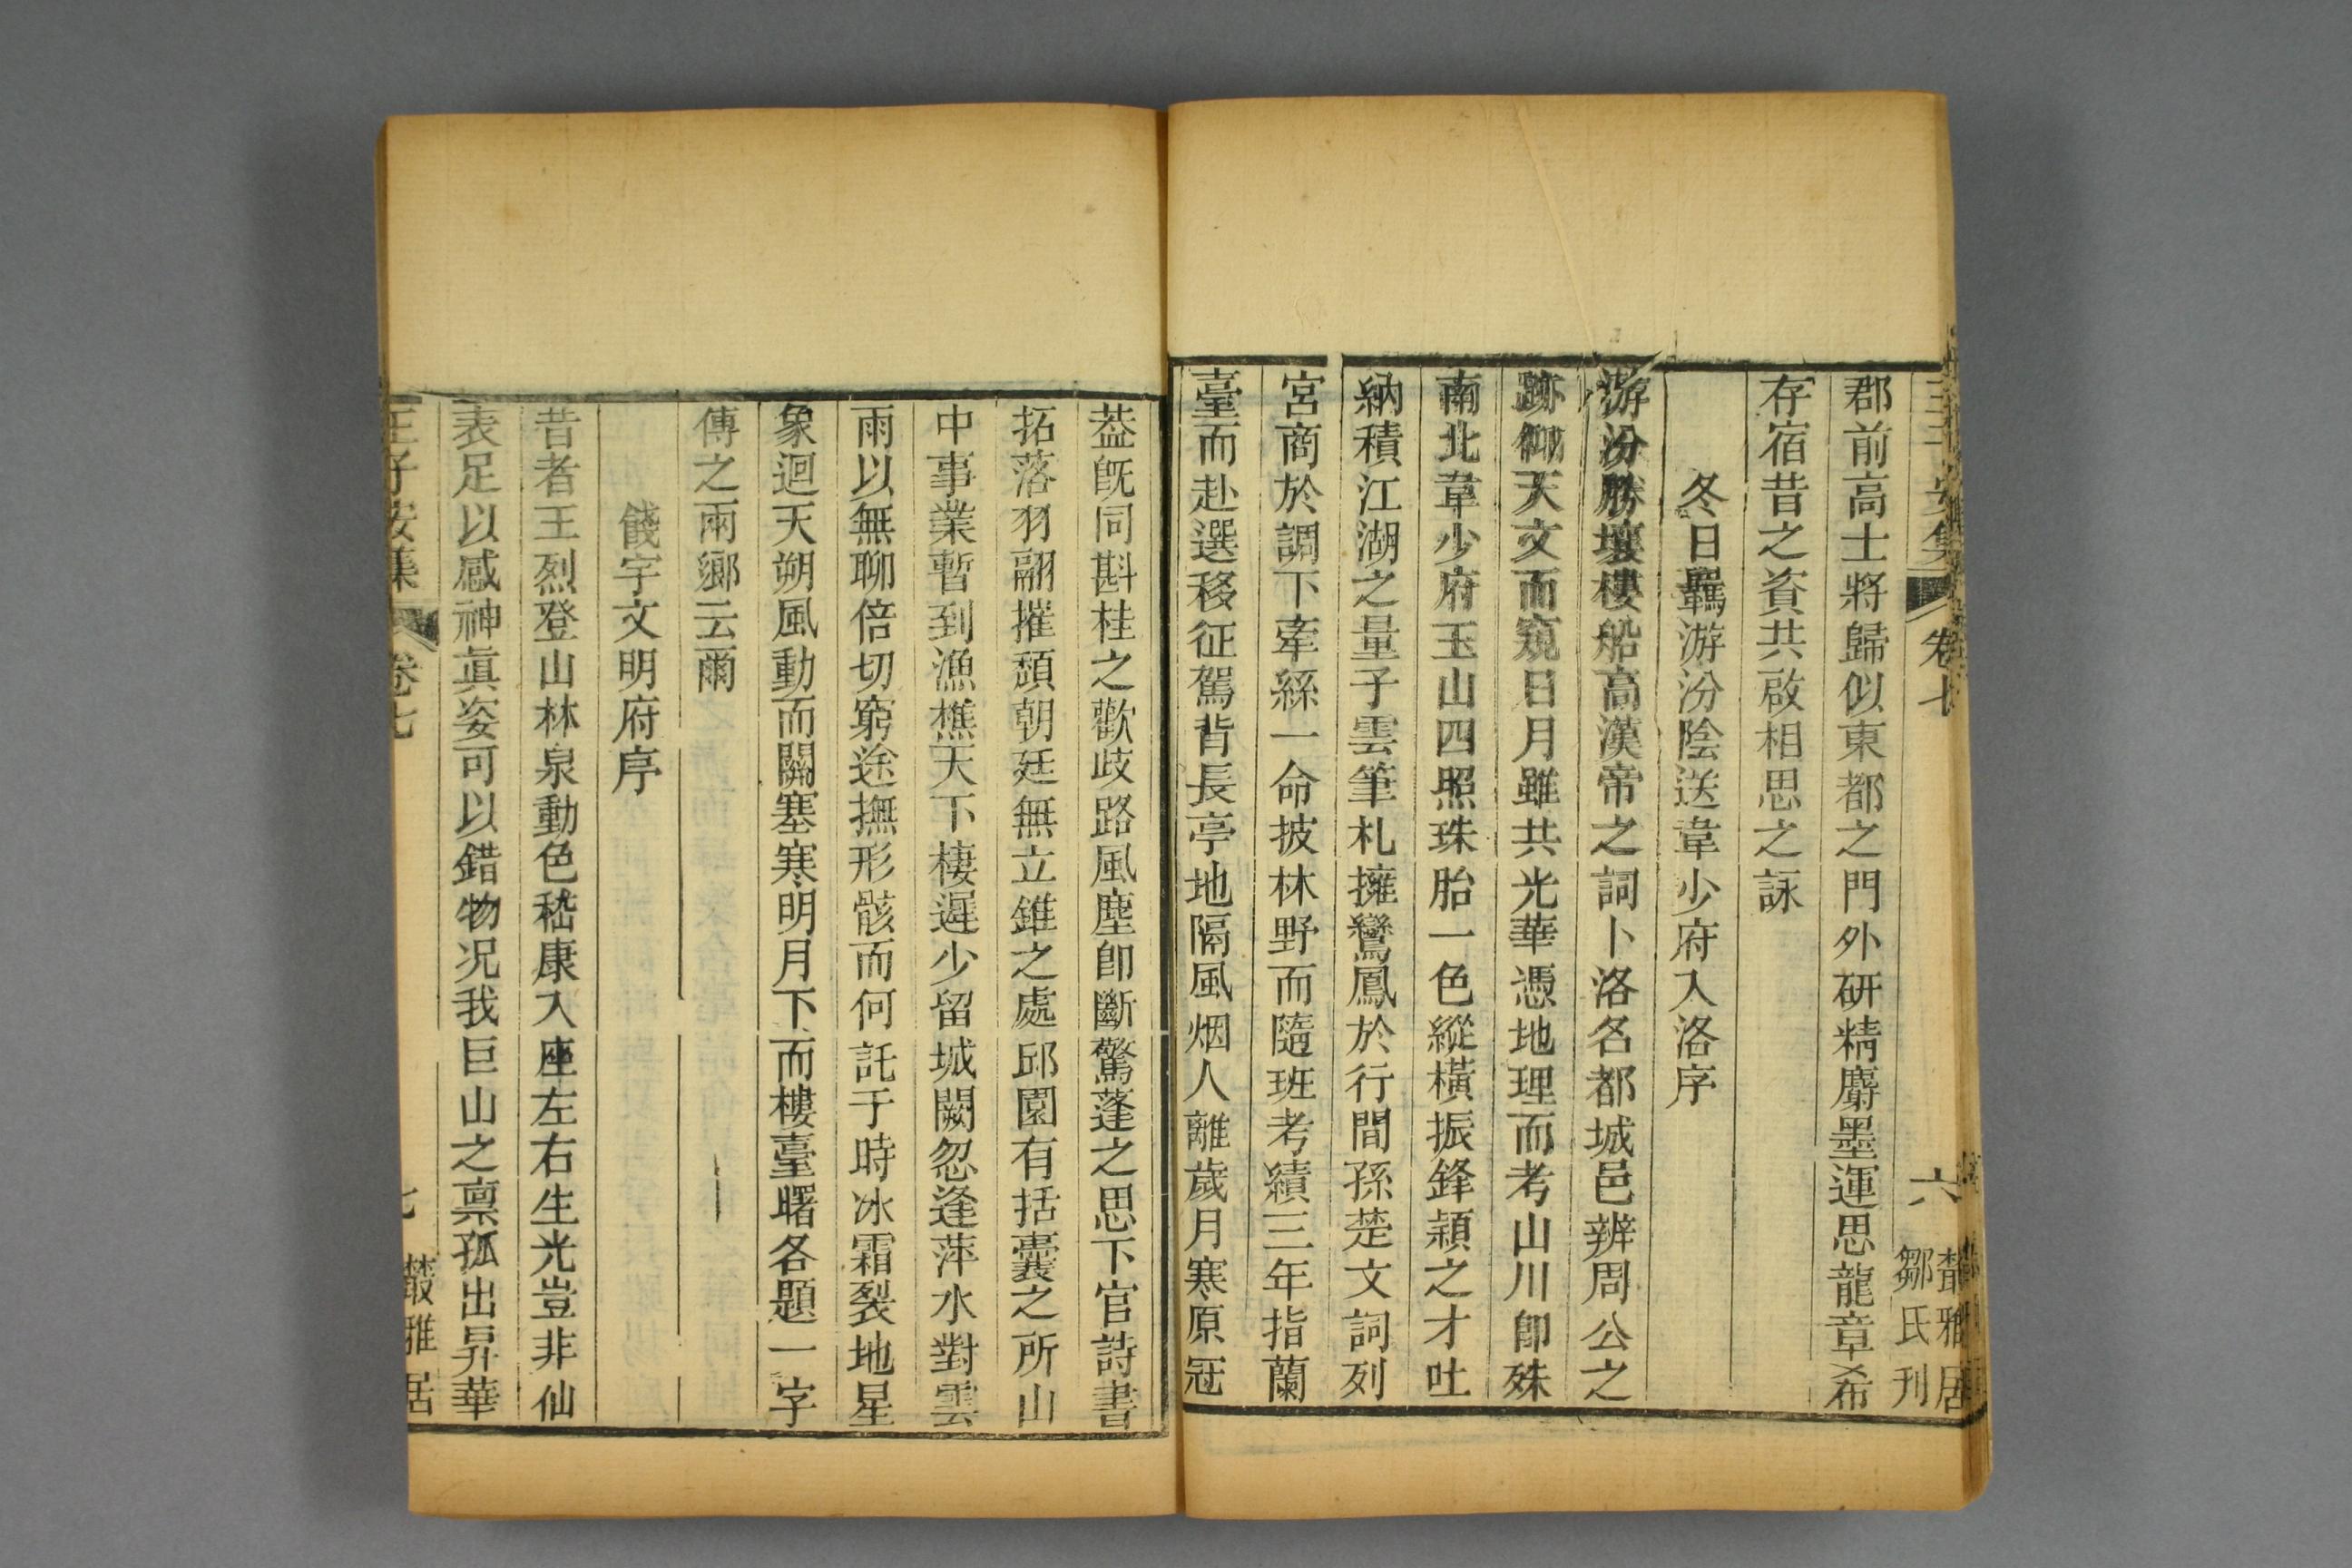 王子安集 卷七 六 叢雅居 鄒氏刊
郡前高士將歸似東都之門外硏精麝墨運思龍章希
存宿昔之資共啟相思之詠
冬日羈游汾陰送韋少府入洛序
游汾勝壤樓船高漢帝之詞卜洛名都城邑辨周公之
跡仰天文而窺日月雖共光華憑地理而考山川卽殊
南北韋少府玉山四照珠胎一色縱橫振鋒穎之才吐
納積江湖之量子雲筆札擁鸞鳳於行間孫楚文詞列
宮商於調下牽絲一命披林野而隨班考績三年指蘭
臺而赴選移征駕背長亭地隔風烟人離歲月寒原冠
葢旣同斟桂之歡歧路風塵卽斷驚蓬之思下官詩書
拓落羽翮摧頹朝廷無立錐之處邱園有括囊之所山
中事業暫到漁樵天下棲遲少留城闕忽逢萍水對雲
雨以無聊倍切窮途撫形骸而何託于時冰霜裂地星
象迴天朔風動而關塞寒明月下而樓臺曙各題一字
傳之兩鄉云爾
餞宇文明府序
昔者王烈登山林泉動色嵇康入座左右生光豈非仙
表足以感神眞姿可以錯物况我巨山之禀孤出昇華
王子安集 卷七 七 叢雅居